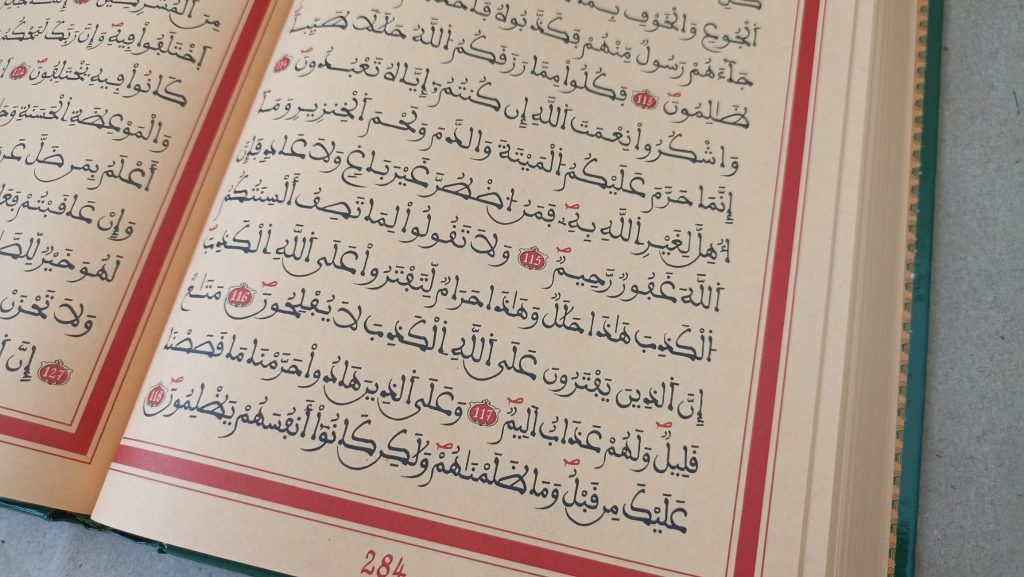 اَ۬لْجُوعِ وَالْخَوْفِ بِمَا
جَآءَهُمْ رَسُولٌ مِّنْهُمْ فَكَذَّبُوهُ
ظَٰلِمُونَ 113 فَكُلُواْ مِمَّا رَزَقَكُمُ اُ۬للَّهُ حَلَٰلاً طَيِّباً
وَاشْكُرُواْ نِعْمَتَ اَ۬للَّهِ إِن كُنتُمُۥٓ إِيَّاهُ تَعْبُدُونَ 114
إِنَّمَا حَرَّمَ عَلَيْكُمُ اُ۬لْمَيْتَةَ وَالدَّمَ وَلَحْمَ اَ۬لْخِنزِيرِ وَمَآ
أُهِلَّ لِغَيْرِ اِ۬للَّهِ بِهِۦ فَمَنُ اُ۟ضْطُرَّ غَيْرَ بَاغٍ وَلَا عَادٍ فَإِنَّ
اَ۬للَّهَ غَفُورٌ رَّحِيمٌ 115 وَلَا تَقُولُواْ لِمَا تَصِفُ أَلْسِنَتُكُمُ
اُ۬لْكَذِبَ هَٰذَا حَلَٰلٌ وَهَٰذَا حَرَامٌ لِّتَفْتَرُواْ عَلَى اَ۬للَّهِ اِ۬لْكَذِبَ
إِنَّ اَ۬لذِينَ يَفْتَرُونَ عَلَى اَ۬للَّهِ اِ۬لْكَذِبَ لَا يُفْلِحُونَ 116 مَتَٰعٌ
قَلِيلٌ وَلَهُمْ عَذَابٌ اَلِيمٌ 117 وَعَلَى اَ۬لذِينَ هَادُواْ حَرَّمْنَا مَا قَصَصْنَا
عَلَيْكَ مِن قَبْلُ وَمَا ظَلَمْنَٰهُمْ وَلَٰكِن كَانُوٓاْ أَنفُسَهُمْ يَظْلِمُونَ 118
284
مِنَ اَ۬لْمُشْرِكِينَ
اَ۪خْتَلَفُواْ فِيهِ وَإِنَّ رَبَّكَ لَيَحْكُمُ
كَانُواْ فِيهِ يَخْتَلِفُونَ 124
وَالْمَوْعِظَةِ اِ۬لْحَسَنَةِ
أَعْلَمُ بِمَن ضَلَّ عَن
وَإِنْ عَاقَبْتُمْ
لَهُوَ خَيْرٌ
وَلَا تَحْزَنْ
127 إِنَّ